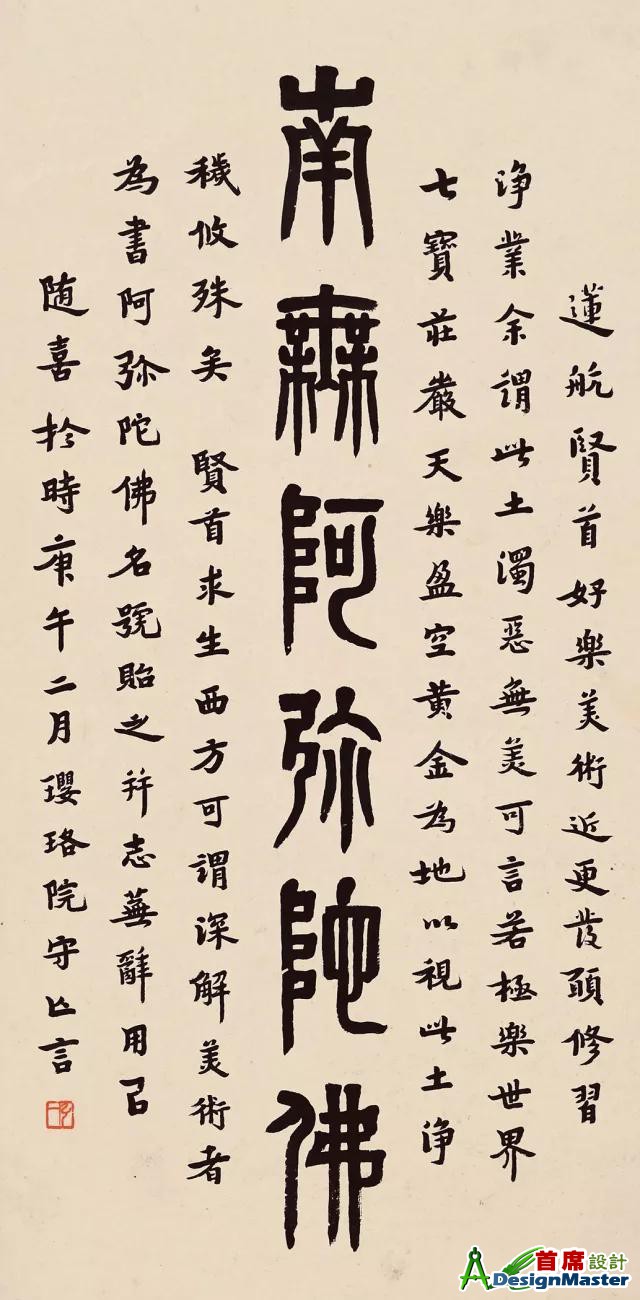 蓮航賢首好樂美術近更發願修習
淨業余謂此土濁惡無美可言若極樂世界
七寶莊嚴天樂盈空黃金為地以視此土淨
南無阿弥陀佛
穢攸殊矣 賢首求生西方可謂深解美術者
為書阿弥陀佛名號貽之并志蕪辭用已
随喜於時庚午二月瓔珞院守仁言
首席設計
DesignMaster